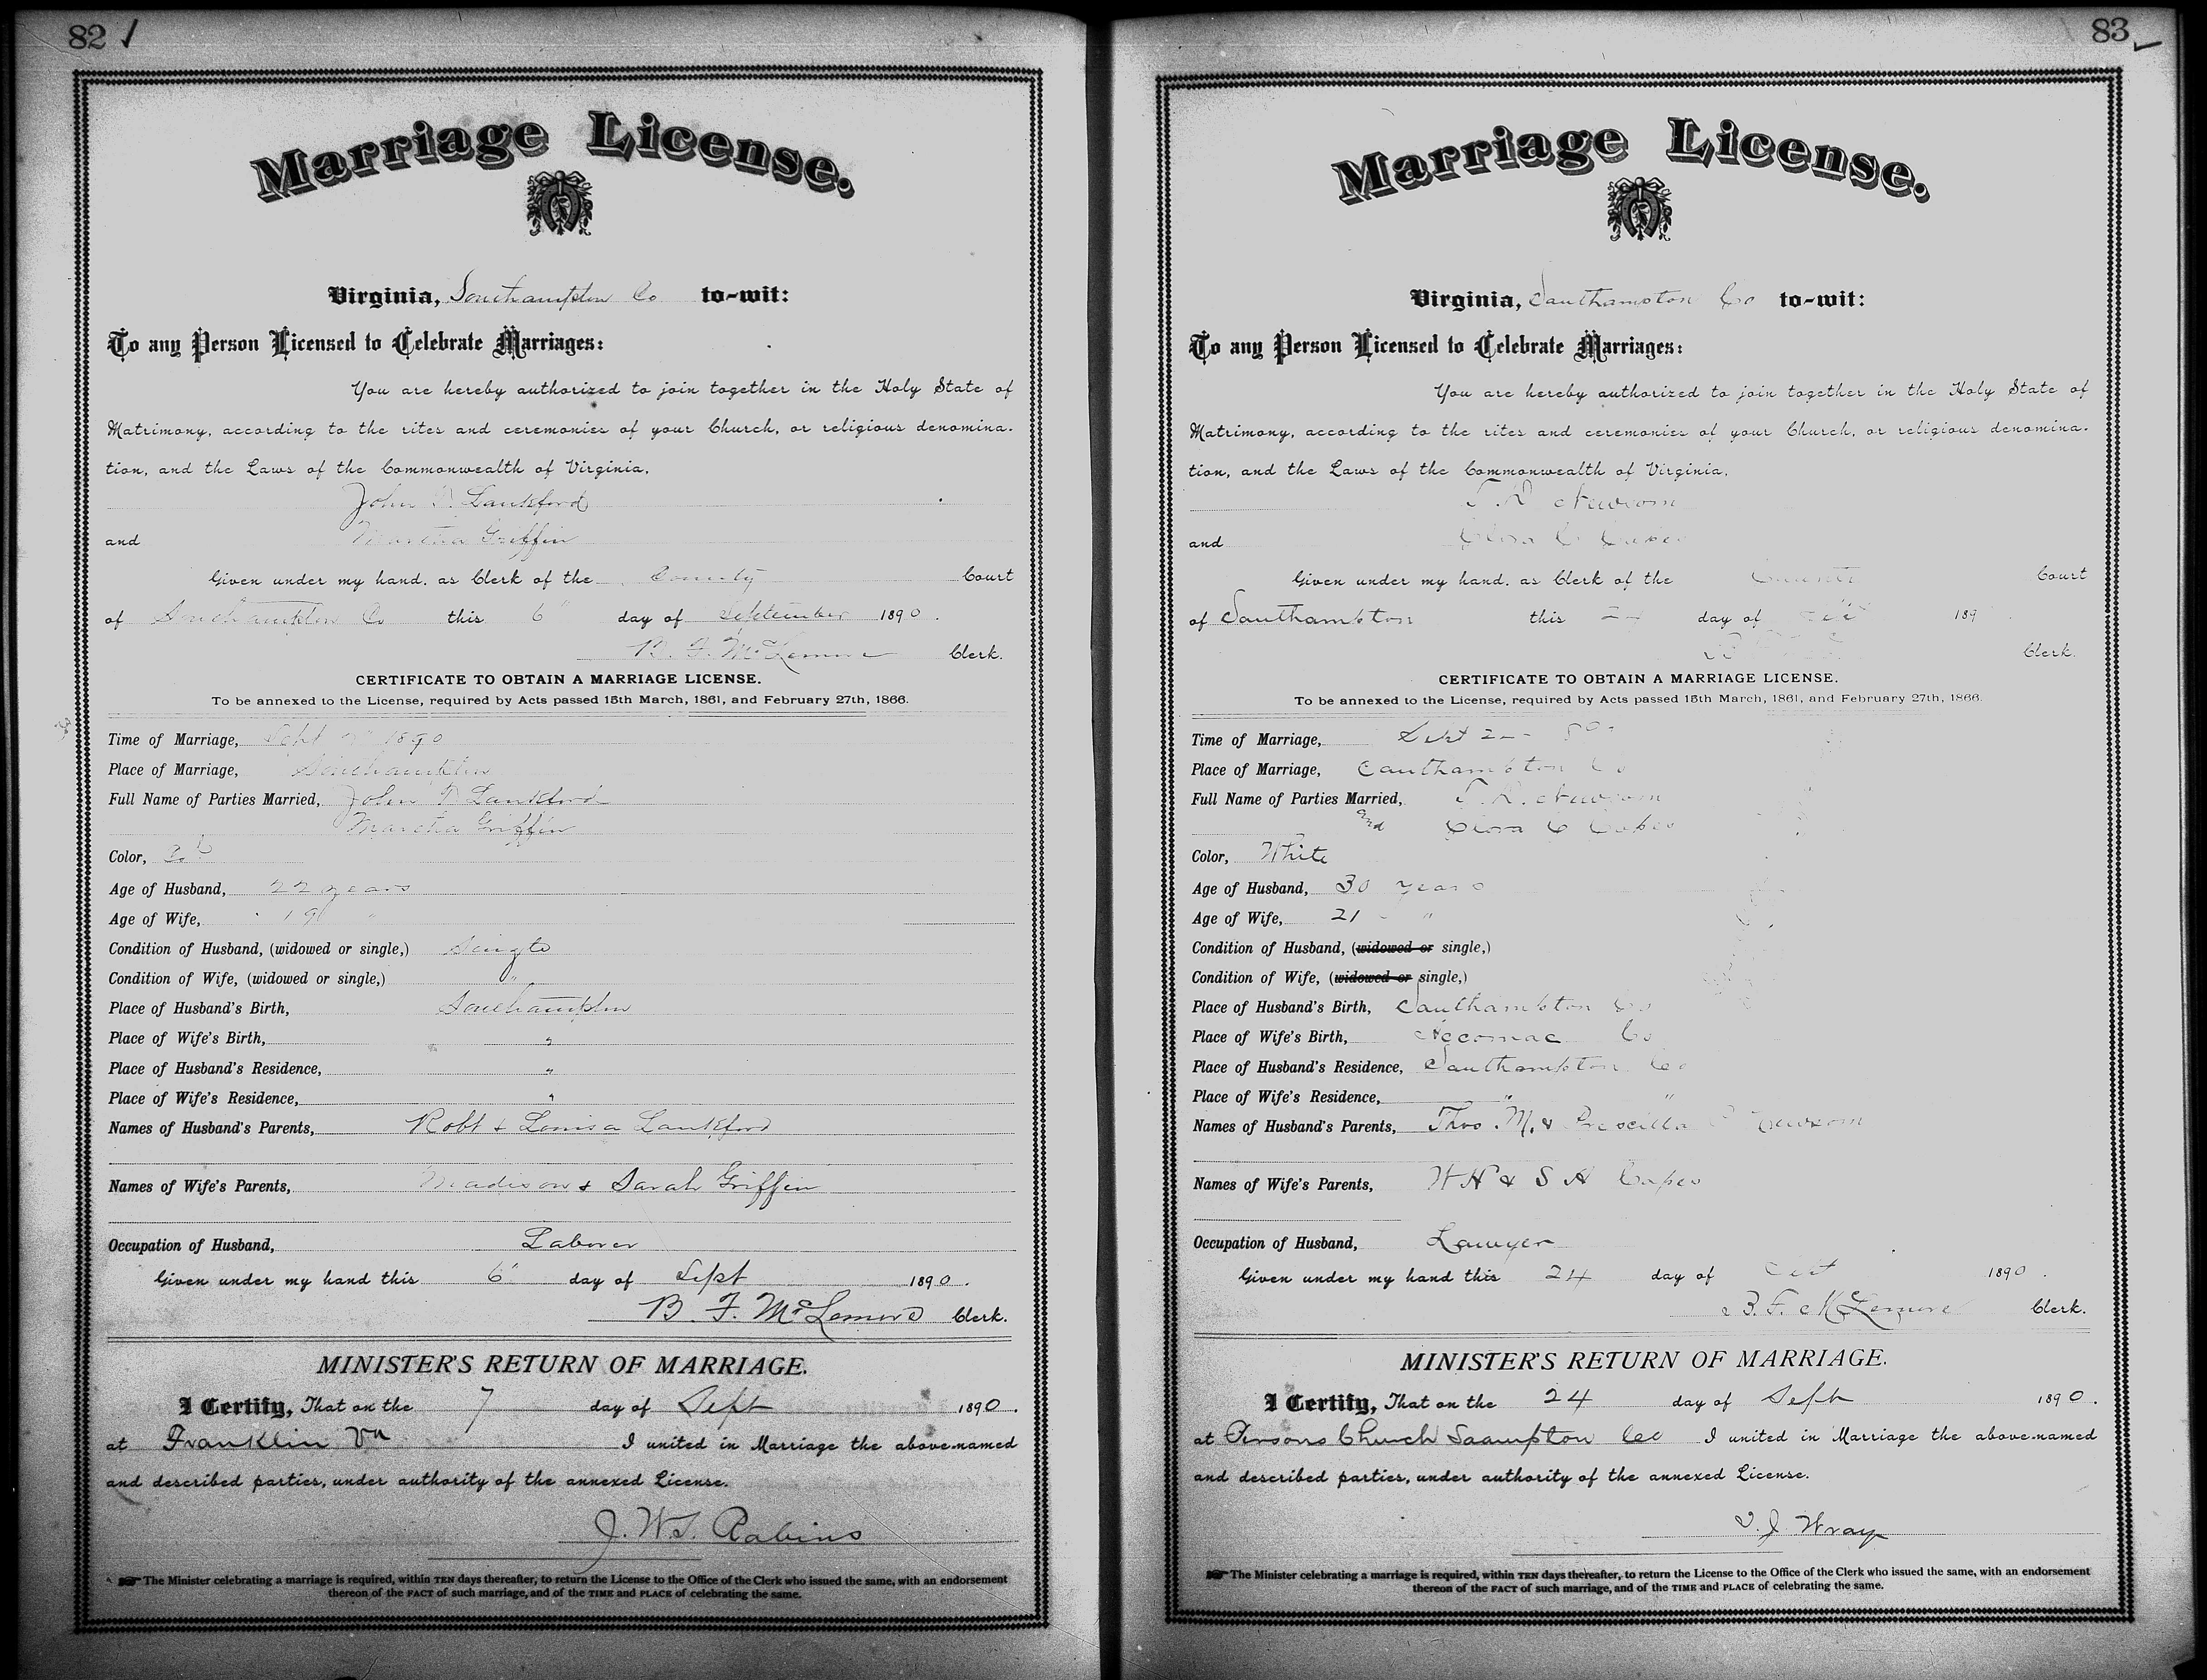 82
Marriage License.
Virginia, Southampton Co to-wit:
To any Person Licensed to Celebrate Marriages:
You are hereby authorized to join together in the Holy State of
Matrimony, according to the rites and ceremonies of your Church, or religious denomina-
tion, and the Laws of the Commonwealth of Virginia,
John Lankford
and Martha Griffin
Given under my hand, as Clerk of the County Court
of Southampton Co this 6" day of September 1890.
B. F. McLemore Clerk.
CERTIFICATE TO OBTAIN A MARRIAGE LICENSE.
To be annexed to the License, required by Acts passed 15th March, 1861, and February 27th, 1866.
Time of Marriage, Sept 7" 1890
Place of Marriage, Southampton
Full Name of Parties Married, John Lankford
Martha Griffin
Color,
Age of Husband, 22 years
Age of Wife, 19 "
Condition of Husband, (widowed or single,) Single
Condition of Wife, (widowed or single,) "
Place of Husband's Birth, Southampton
Place of Wife's Birth, "
Place of Husband's Residence, "
Place of Wife's Residence, "
Names of Husband's Parents, Robt & Louisa Lankford
Names of Wife's Parents, Madison & Sarah Griffin
Occupation of Husband, Laborer
Given under my hand this 6" day of Sept 1890.
B. F. McLemore Clerk.
MINISTER'S RETURN OF MARRIAGE.
I Certify, That on the 7 day of Sept 1890.
at Franklin Va I united in Marriage the above-named
and described parties, under authority of the annexed License.
J. W. S. Rabins
The Minister celebrating a marriage is required, within TEN days thereafter, to return the License to the Office of the Clerk who issued the same, with an endorsement
thereon of the FACT of such marriage, and of the TIME and PLACE of celebrating the same.
83
Marriage License.
Virginia, Southampton Co to-wit:
To any Person Licensed to Celebrate Marriages:
You are hereby authorized to join together in the Holy State of
Matrimony, according to the rites and ceremonies of your Church, or religious denomina-
tion, and the Laws of the Commonwealth of Virginia,
Newsom
and Clora C Capes
Given under my hand, as Clerk of the County Court
of Southampton this day of 189
Clerk.
CERTIFICATE TO OBTAIN A MARRIAGE LICENSE.
To be annexed to the License, required by Acts passed 15th March, 1861, and February 27th, 1866.
Time of Marriage, Sept
Place of Marriage, Southampton Co
Full Name of Parties Married, Newsom
and Clora C Capes
Color, White
Age of Husband, 30 years
Age of Wife, 21 "
Condition of Husband, (widowed or single,)
Condition of Wife, (widowed or single,)
Place of Husband's Birth, Southampton Co
Place of Wife's Birth, Accomac Co
Place of Husband's Residence, Southampton Co
Place of Wife's Residence, " "
Names of Husband's Parents, Thos. M. & Priscilla Newsom
Names of Wife's Parents, W H & S A Capes
Occupation of Husband, Lawyer
Given under my hand this 24 day of 1890.
B. F. McLemore Clerk.
MINISTER'S RETURN OF MARRIAGE.
I Certify, That on the 24 day of Sept 1890.
at Persons Church Soampton Co I united in Marriage the above-named
and described parties, under authority of the annexed License.
J Wray
The Minister celebrating a marriage is required, within TEN days thereafter, to return the License to the Office of the Clerk who issued the same, with an endorsement
thereon of the FACT of such marriage, and of the TIME and PLACE of celebrating the same.